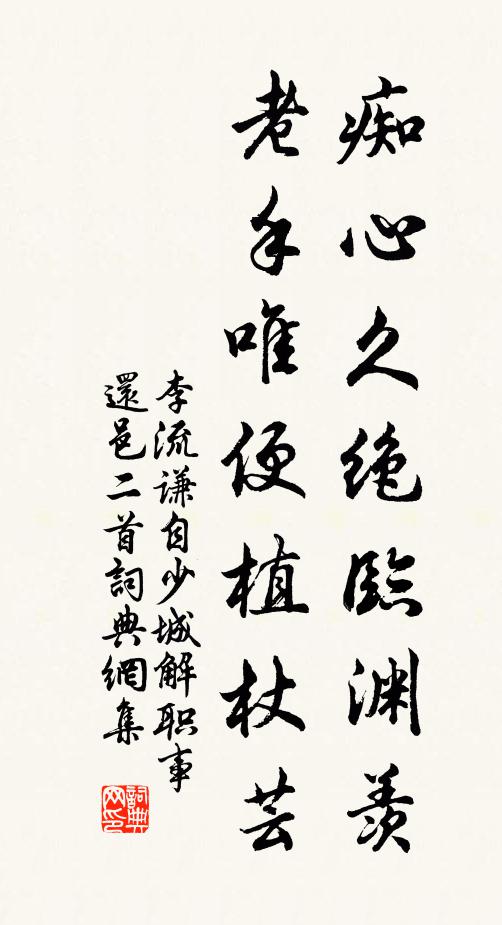 痴心久绝臨渊羨
老手唯便植杖芸
李流谦自少城解职事
還邑二首詞典網集
詞典
网印